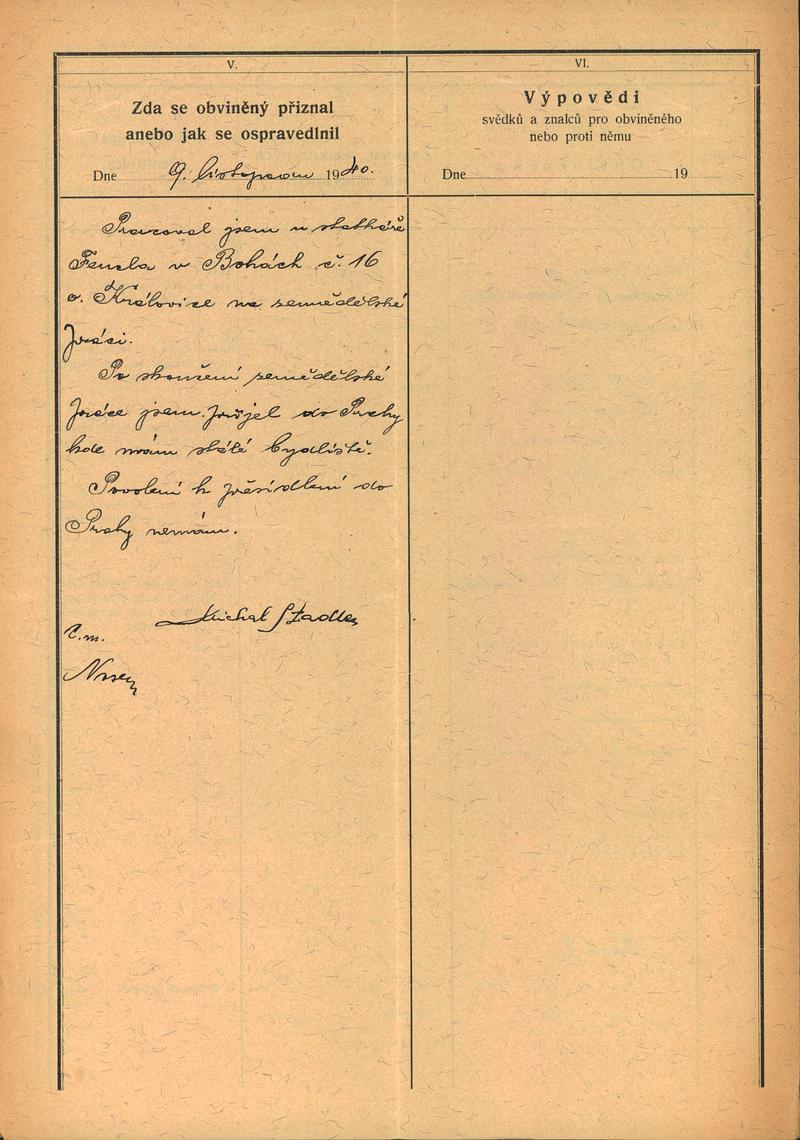 V.
Zda se obviněný přiznal
anebo jak se ospravedlnil
Dne 9. listopadu 1940.
Pracoval jsem u statkáře
Fencla v Bohách č. 16
o. Královice na zemědělské
práci.
Po skončení zemědělské
práce jsem přijel do Prahy
kde mám stálé bydliště.
Povolení k přesídlení do
Prahy nemám.
Michal Stadler
VI.
Výpovědi
svědků a znalců pro obviněného
nebo proti němu
Dne 19